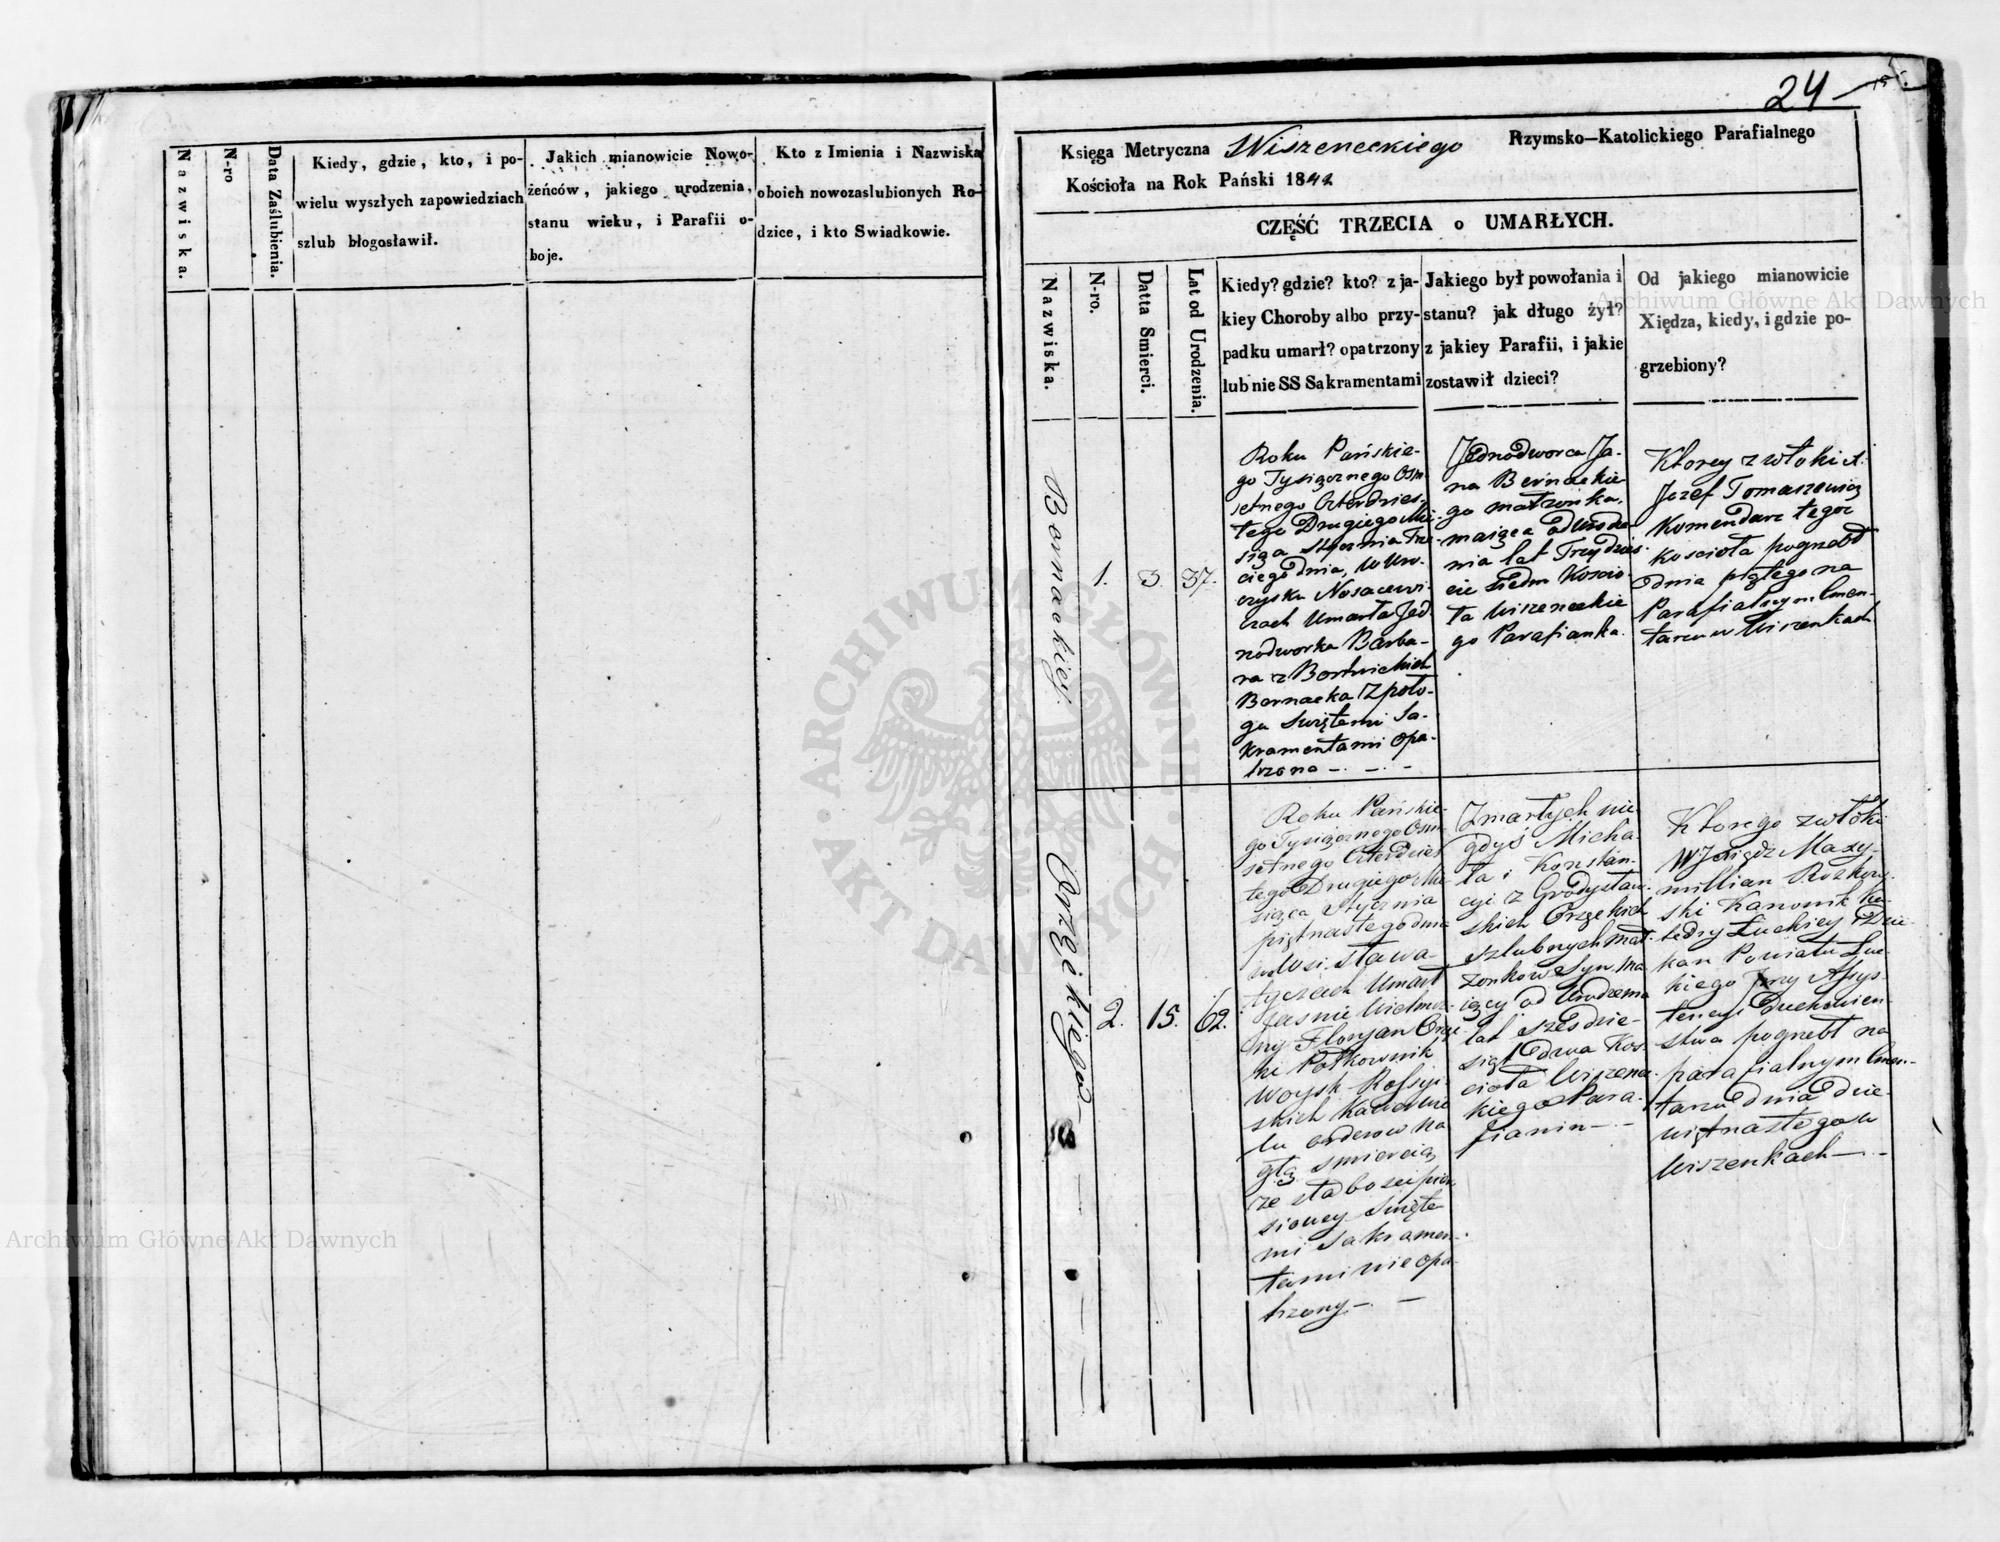 Nazwiska.
N-ro
Data Zaślubienia.
Kiedy, gdzie, kto, i po-
wielu wyszłych zapowiedziach
szlub błogosławił.
Jakich mianowicie Nowo-
żeńców, jakiego urodzenia,
stanu wieku, i Parafii o-
boje.
Kto z Imienia i Nazwiska
oboich nowozaslubionych Ro-
dzice, i kto Swiadkowie.
24
Księga Metryczna Wiszeneckiego Rzymsko-Katolickiego Parafialnego
Kościoła na Rok Pański 1842
CZĘŚĆ TRZECIA o UMARŁYCH.
Nazwiska.
N-ro.
Datta Smierci.
Lat od Urodzenia.
Kiedy? gdzie? kto? z ja-
kiey Choroby albo przy-
padku umarł? opatrzony
lub nie SS Sakramentami
Jakiego był powołania i
stanu? jak długo żył?
z jakiey Parafii, i jakie
zostawił dzieci?
Od jakiego mianowicie
Xiędza, kiedy, i gdzie po-
grzebiony?
Bornackiej
1.
3.
37.
Roku Pańskie-
go Tysiącznego Osm
setnego Czterdzies-
tego Drugiego Mie
siąca Stycznia Trze-
ciego dnia, w Uro-
czysku Nosacewi-
czach Umarła Jed
nodworka Barba-
ra z
Bernacka z poło-
gu Swiętemi Sa-
kramentami opa-
trzona
Jednodworca Ja-
na Bernackie-
go małżonka,
maiąca od Urodze-
nia lat Trzydzies-
cie siedm Koscio-
ła Wiszeneckie
go Parafianka.
Ktorey zwłoki X:
Jozef Tomaszewicz
Komendarz tegoż
Koscioła pogrzebł
dnia piątego na
Parafialnym Cmen-
tarzu w Wiszenkach
Orzęckiego
2.
15.
62.
Roku Pańskie-
go Tysiącznego Osm
setnego Czterdzies
tego Drugiego Mie
siąca Stycznia
piętnastego dnia
w Wsi Sława-
tyczach Umarł
Jasnie Wielmo-
żny Floryan Orzę
ki Połkownik
Woysk Rossyi-
skich Kawaler wie
lu orderow na
głą smiercią
ze słabosci pier-
siowey Swięte
mi Sakramen-
tami nie opa-
trzony
Zmarłych nie-
gdyś Micha-
ła i Konstan-
cyi z Grodysław-
skich Orzęckich
szlubnych mał-
żonkow Syn, ma
iący od Urodzenia
lat sześdzie-
siąt dwa Kos-
cioła Wiszenec-
kiego Para-
fianin
Ktorego zwłoki
W Xiądz Maxy-
millian
ski Kanonik Ka-
tedry Łuckiey Dzie
kan Powiatu Łuc
kiego przy Assys-
tencyi Duchowien-
stwa pogrzebł na
parafialnym Cmen-
tarzu dnia Dzie-
więtnastego w
Wiszenkach
ARCHIWUM GŁÓWNE AKT DAWNYCH
Archiwum Główne Akt Dawnych
Archiwum Główne Akt Dawnych